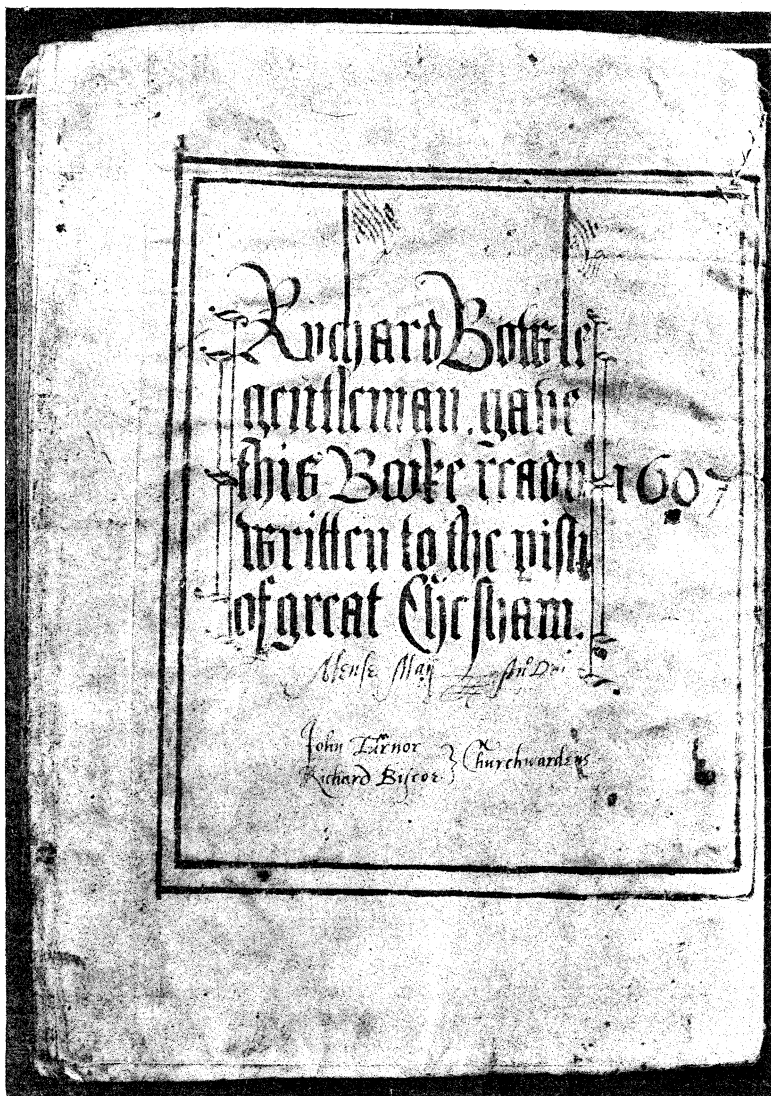 Rychard Bowle
gentleman, gave
this Booke ready 1607
written to the pish
of great Chesham.
Mense Maij Ano Dni
John Turnor
Richard Biscoe } Churchwardens